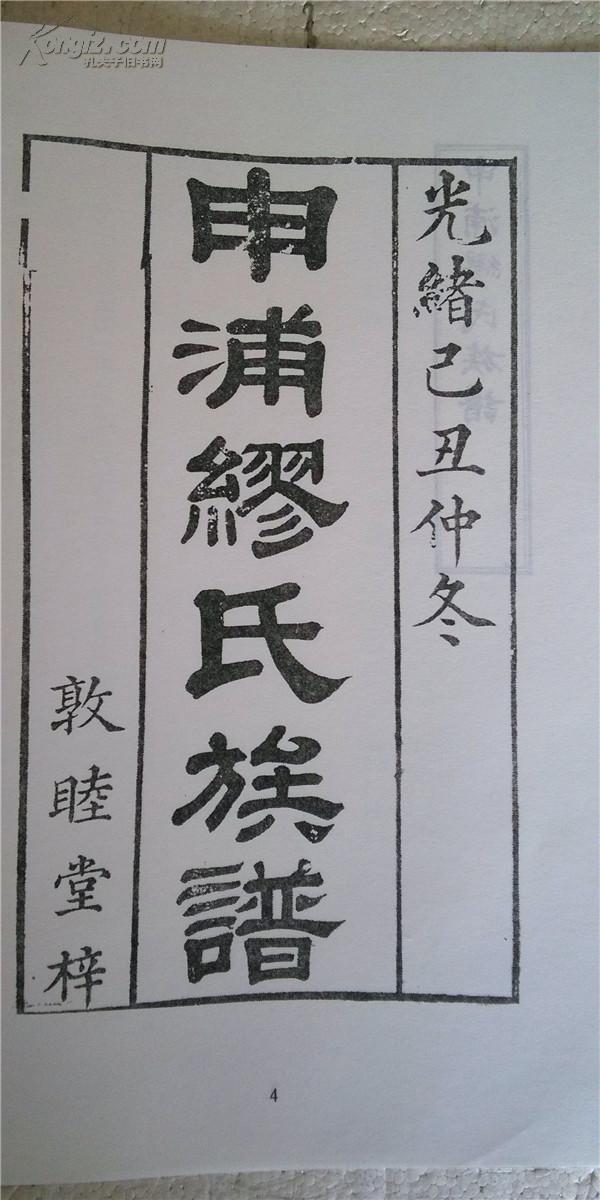 Kongfz.com
孔夫子旧书网
光緒己丑仲冬
申浦繆氏族譜
敦睦堂梓
4